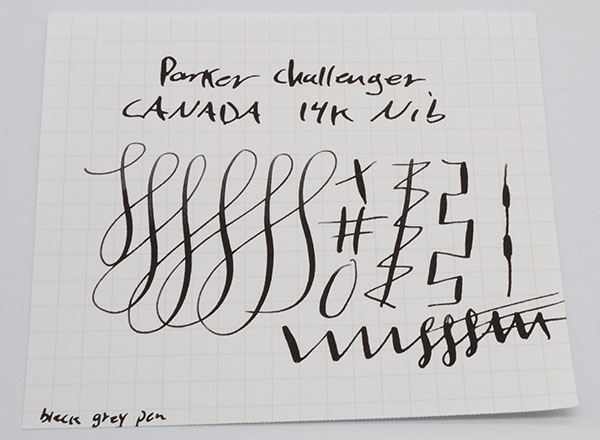 Parker challenger
CANADA 14K Nib
black grey pen